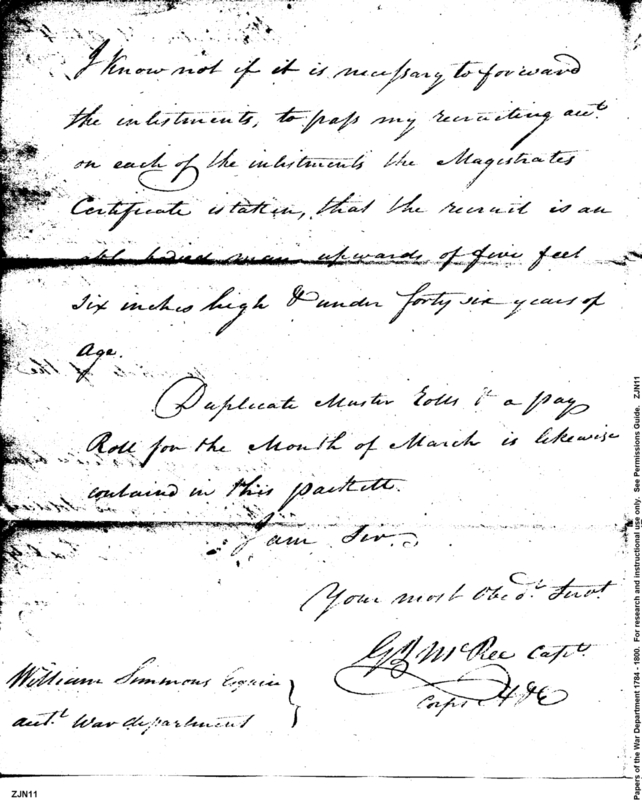 I know not if it is necessary to forward
the inlistments, to pass my recruiting acct.
on each of the inlistments the Magistrates
Certificate is taken, that the recruit is an
able bodied man upwards of five feet
six inches high & under forty six years of
age.
Duplicate Muster Rolls & a pay
Roll for the Month of March is likewise
contained in this packett.
I am Sir
Your most Obedt. Servt.
McRee Capt.
Corps A & E
William Simmons Esquire
acct. War department
Papers of the War Department 1784 - 1800. For research and instructional use only. See Permissions Guide. ZJN11
ZJN11